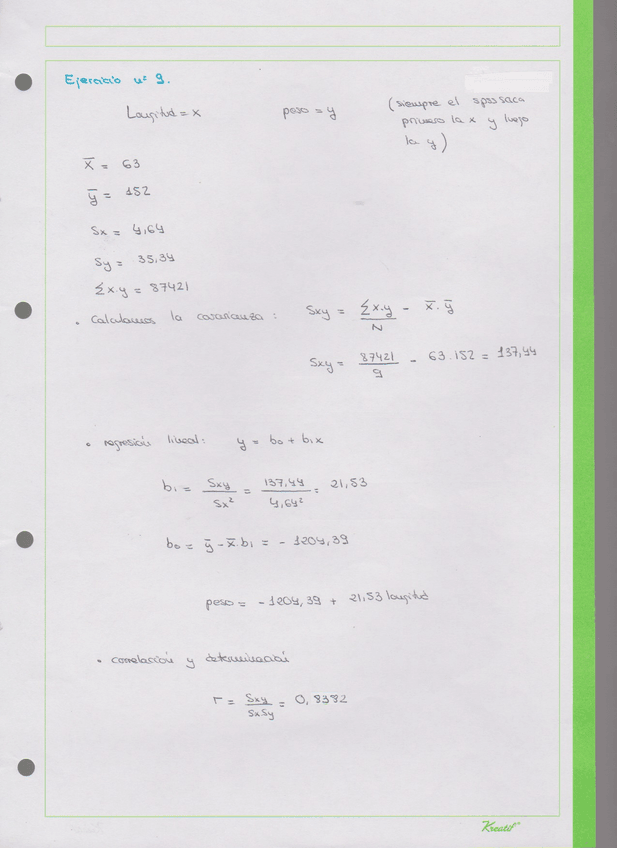 Ejercicio nº 9.
Longitud = x peso = y (siempre el spss saca
primero la x y luego
la y)
x̄ = 63
ȳ = 152
Sx = 4,64
Sy = 35,34
Σx·y = 87421
• Calculamos la covarianza: Sxy = Σx·y / N - x̄·ȳ
Sxy = 87421 / 9 - 63·152 = 137,44
• regresión lineal: y = b0 + b1x
b1 = Sxy / Sx² = 137,44 / 4,64² = 21,53
b0 = ȳ - x̄·b1 = - 1204,39
peso = - 1204,39 + 21,53 longitud
• correlación y determinación
r = Sxy / SxSy = 0,8382
Kreatif